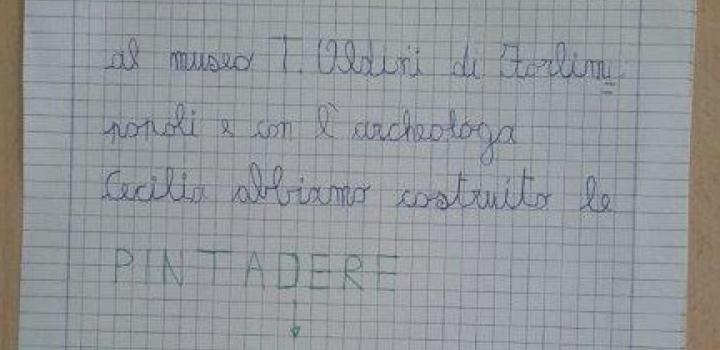 al museo T. Aldini di Forlim=
popoli e con l'archeologa
Cecilia abbiamo costruito le
PINTADERE